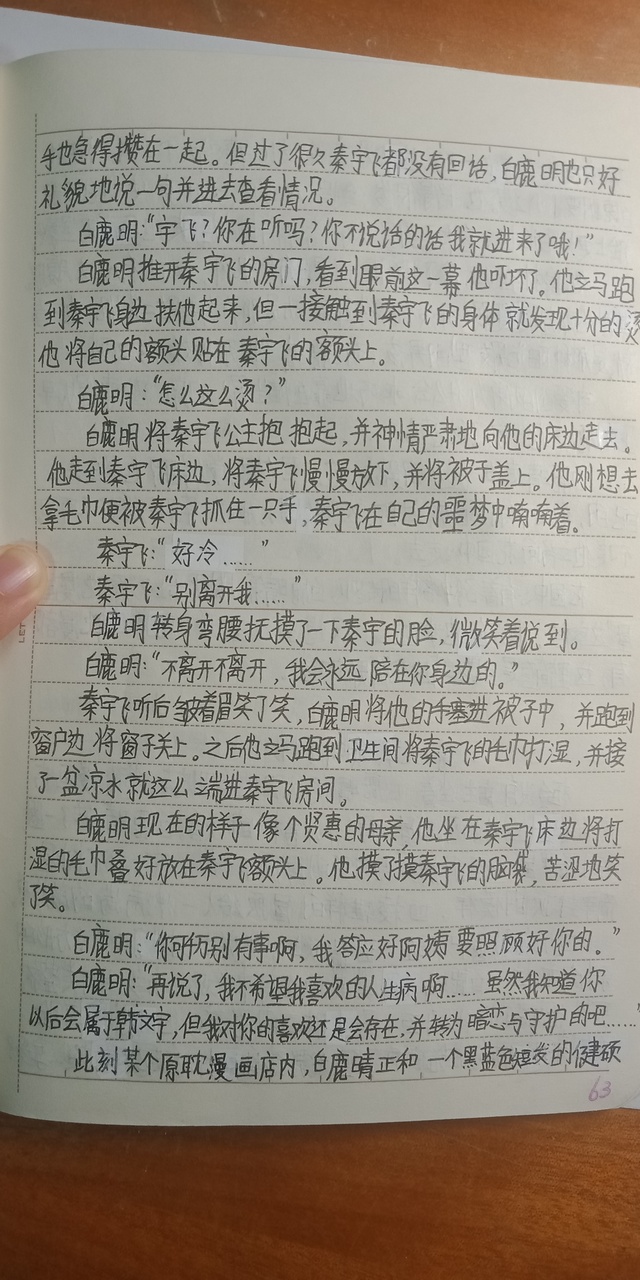 手也急得攒在一起。但过了很久秦宇飞都没有回话，白鹿明也只好
礼貌地说一句并进去查看情况。
白鹿明：“宇飞？你在听吗？你不说话的话我就进来了哦！”
白鹿明推开秦宇飞的房门，看到眼前这一幕他吓坏了。他立马跑
到秦宇飞身边扶他起来，但一接触到秦宇飞的身体就发现十分的烫
他将自己的额头贴在秦宇飞的额头上。
白鹿明：“怎么这么烫？”
白鹿明将秦宇飞公主抱抱起，并神情严肃地向他的床边走去。
他走到秦宇飞床边，将秦宇飞慢慢放下，并将被子盖上。他刚想去
拿毛巾便被秦宇飞抓住一只手，秦宇飞在自己的噩梦中喃喃着。
秦宇飞：“好冷……”
秦宇飞：“别离开我……”
白鹿明转身弯腰抚摸了一下秦宇的脸，微笑着说到。
白鹿明：“不离开不离开，我会永远陪在你身边的。”
秦宇飞听后皱着眉笑了笑，白鹿明将他的手塞进被子中，并跑到
窗户边将窗子关上。之后他立马跑到卫生间将秦宇飞的毛巾打湿，并接
了一盆凉水就这么端进秦宇飞房间。
白鹿明现在的样子像个贤惠的母亲，他坐在秦宇飞床边将打
湿的毛巾叠好放在秦宇飞额头上。他摸了摸秦宇飞的脑袋，苦涩地笑
了笑。
白鹿明：“你可千万别有事啊，我答应好阿姨要照顾好你的。”
白鹿明：“再说了，我不希望我喜欢的人生病啊……虽然我知道你
以后会属于韩文宇，但我对你的喜欢还是会存在，并转为暗恋与守护的吧……”
此刻某个原耽漫画店内，白鹿晴正和一个黑蓝色短发的健硕
63